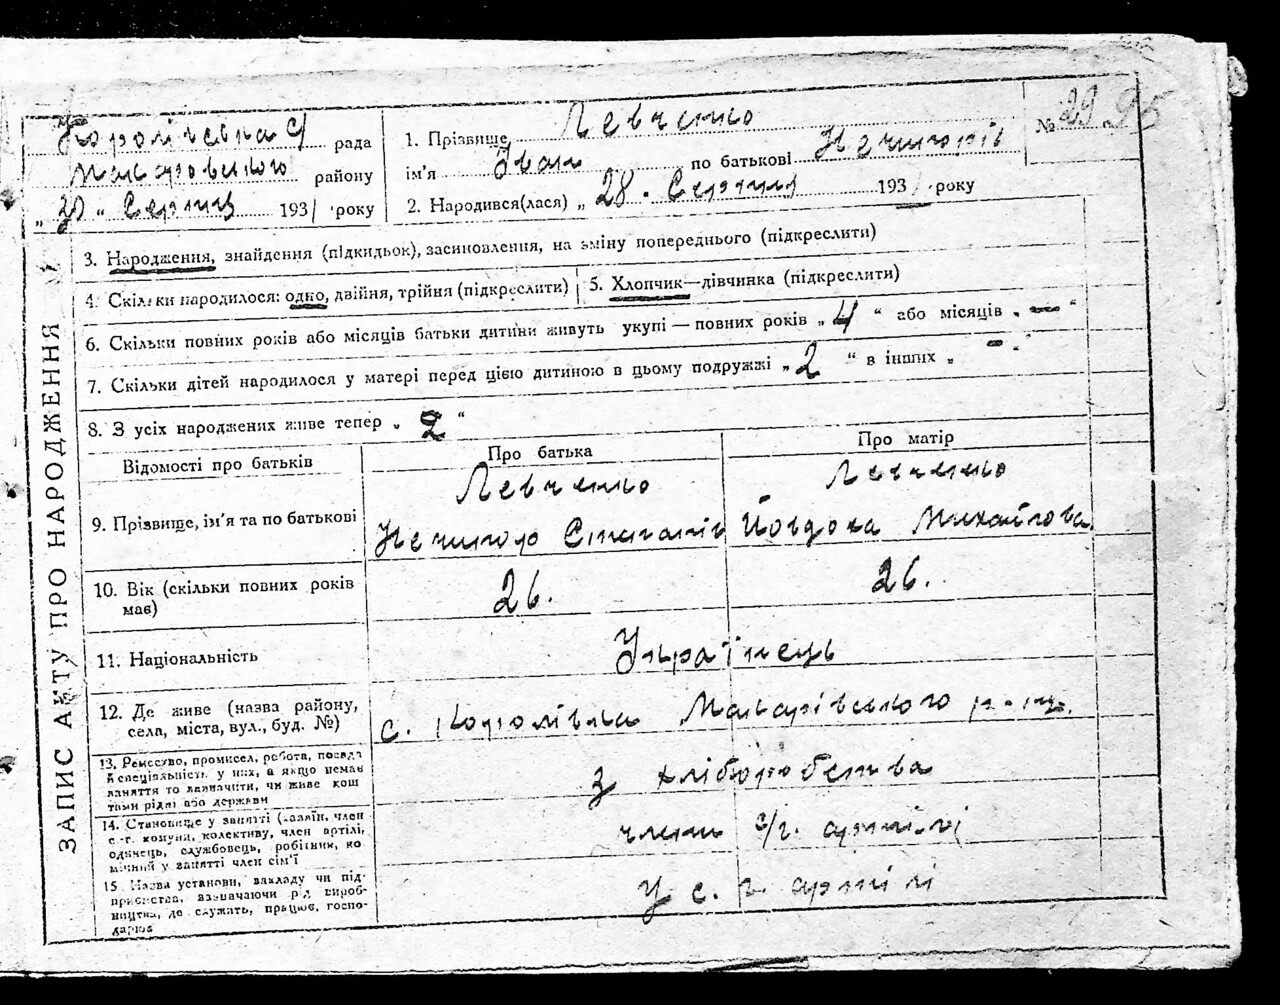 ЗАПИС АКТУ ПРО НАРОДЖЕННЯ
Королівська с/ рада
Макаровського району
„ 30 " Серпня 1931 року
№ 29 95
1. Прізвище Левченко
ім'я Іван по батькові Нечипорів
2. Народився(лася) „ 28 . Серпня 1931 року
3. Народження, знайдення (підкидьок), засиновлення, на зміну попереднього (підкреслити)
4. Скільки народилося: одно, двійня, трійня (підкреслити)
5. Хлопчик—дівчинка (підкреслити)
6. Скільки повних років або місяців батьки дитини живуть укупі — повних років „ 4 " або місяців „ — "
7. Скільки дітей народилося у матері перед цією дитиною в цьому подружжі „ 2 " в інших „ — "
8. З усіх народжених живе тепер „ 2 "
Відомості про батьків
Про батька
Про матір
9. Прізвище, ім'я та по батькові
Левченко
Нечипор Степанів
Левченко
Йовдоха Михайлова
10. Вік (скільки повних років
має)
26.
26.
11. Національність
Українець
12. Де живе (назва району,
села, міста, вул., буд. №)
с. Королівка Макарівського р-ну.
13. Ремество, промисел, робота, посада
й спеціальність у них, а якщо немає
заняття то зазначити, чи живе кош
тами рідні або держави
з хліборобства
14. Становище у занятті (хазяїн, член
с.-г. комуни, колективу, член артілі,
одинець, службовець, робітник, по
мічний у занятті член сім'ї
член с/г. артілі
15. Назва установи, закладу чи під-
приємства, зазначаючи рід вироб-
ництва, де служить, працює, госпо-
дарює
У с. г. артілі